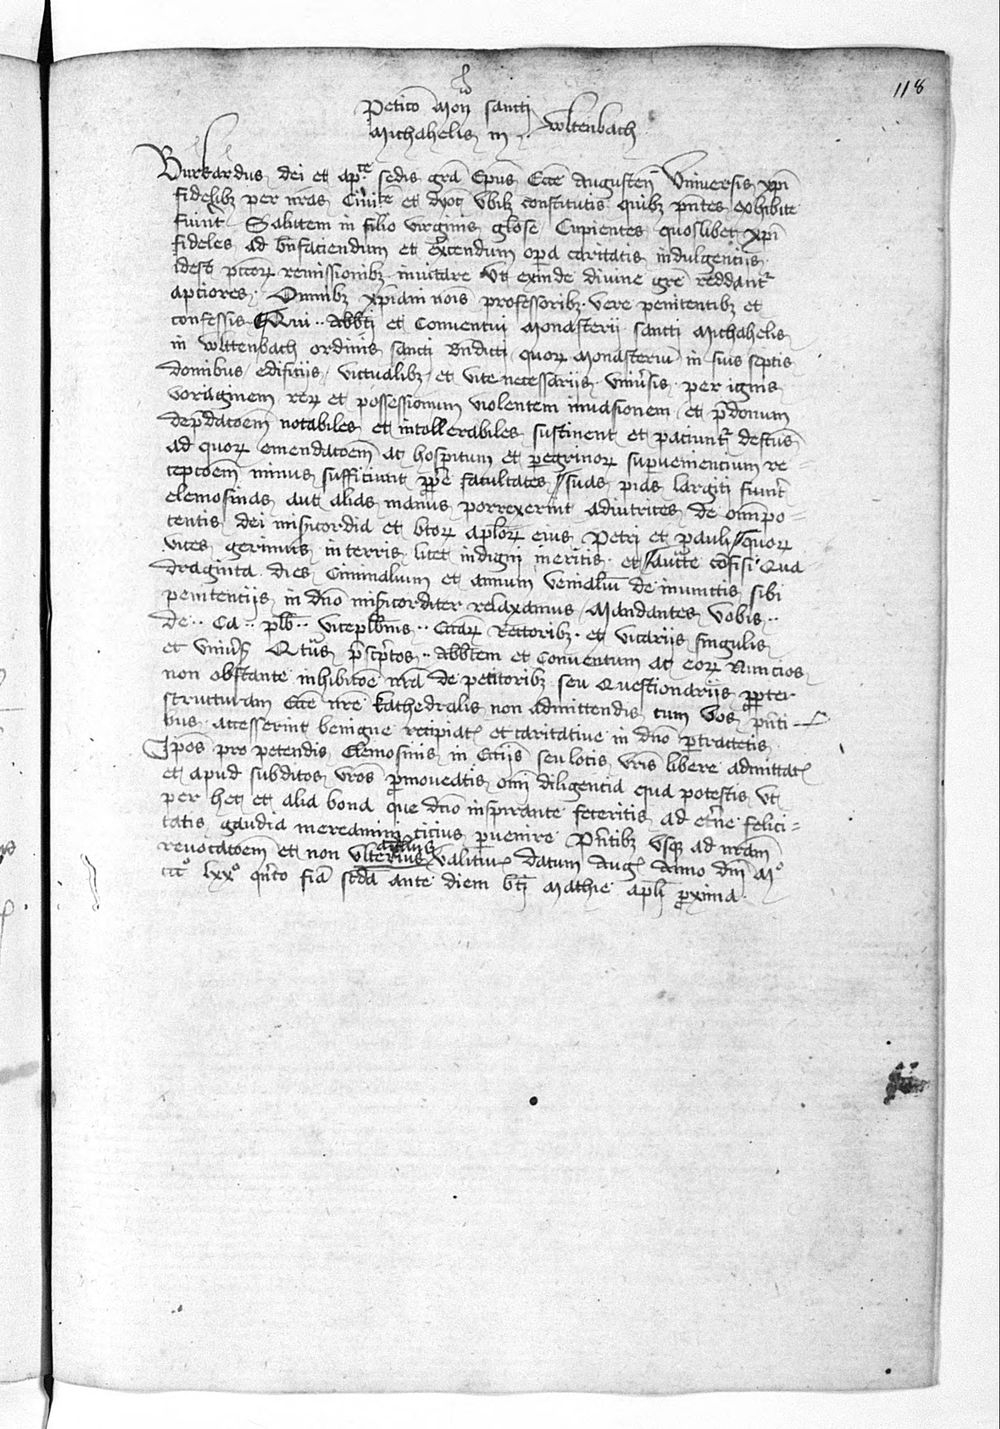 118
Peticio Mon sancti
Michahelis in Wltenbach
Burkardus dei et apce sedis gra Epus Ecce Augusten Universis xpi
fidelibz per nras Civitem et dyoc ubilz constitutis quibz pntes exhibite
fuint Salutem in filio virginis glose Cupientes quoslibet xpi
fideles ad bnfaciendum et exercendum opa caritatis indulgenciis
idest pccorum remissionibz invitare Ut exinde divine gre reddantr
apciores Omnibz xpiani nois professoribz vere penitentibz et
confessis Qui .. Abbti et Conventui Monasterii sancti Michahelis
in Wlttenbach ordinis sancti Bndicti quorum Monasterium in suis septis
domibus edificiis victualibz et vite necessariis univsis per ignis
voraginem rerum et possessionum violentem invasionem et pdonum
depdacoem notabiles et intollerabiles sustinent et paciuntr defectus
ad quorum emendacoem ac hospitum et peregrinorum supveniencium re-
cepcoem minus sufficiunt ppe facultates suas pias largiti fuint
elemosinas aut alias manus porrexerint adiutrices de omipo-
tentis dei misicordia et btorum aplorum eius Petri et Pauli quorum
vices gerimus in terris licet indigni meritis et aucte confisi Qua
draginta dies Criminalium et annum venialium de iniunctis sibi
penitenciis in dno misicorditer relaxamus Mandantes vobis ..
de .. Ca .. plb .. viceplbnis .. Eccarum Rectoribz et vicariis singulis
et univsis Qtus pscptos .. Abbtem et Conventum ac eorum Nuncios
non obstante inhibicoe nra de petitoribz seu Questionariis ppter
structuram Ecce nre kathedralis non admittendis cum vos pnti-
bus accesserint benigne recipiatis et caritative in dno ptractetis
Ipos pro petendis Elemosinis in Ecciis seu locis vris libere admittatis
et apud subditos vros pmoveatis omi diligencia qua potestis ut
per hec et alia bona que dno inspirante feceritis ad etne felici-
tatis gaudia mereamini cicius pvenire Pntibz usque ad nram
revocacoem et non ulterius valituris datum Aug Anno dni Mo
ccco lxxo qrto fia scda ante diem bti Mathie apli proxima